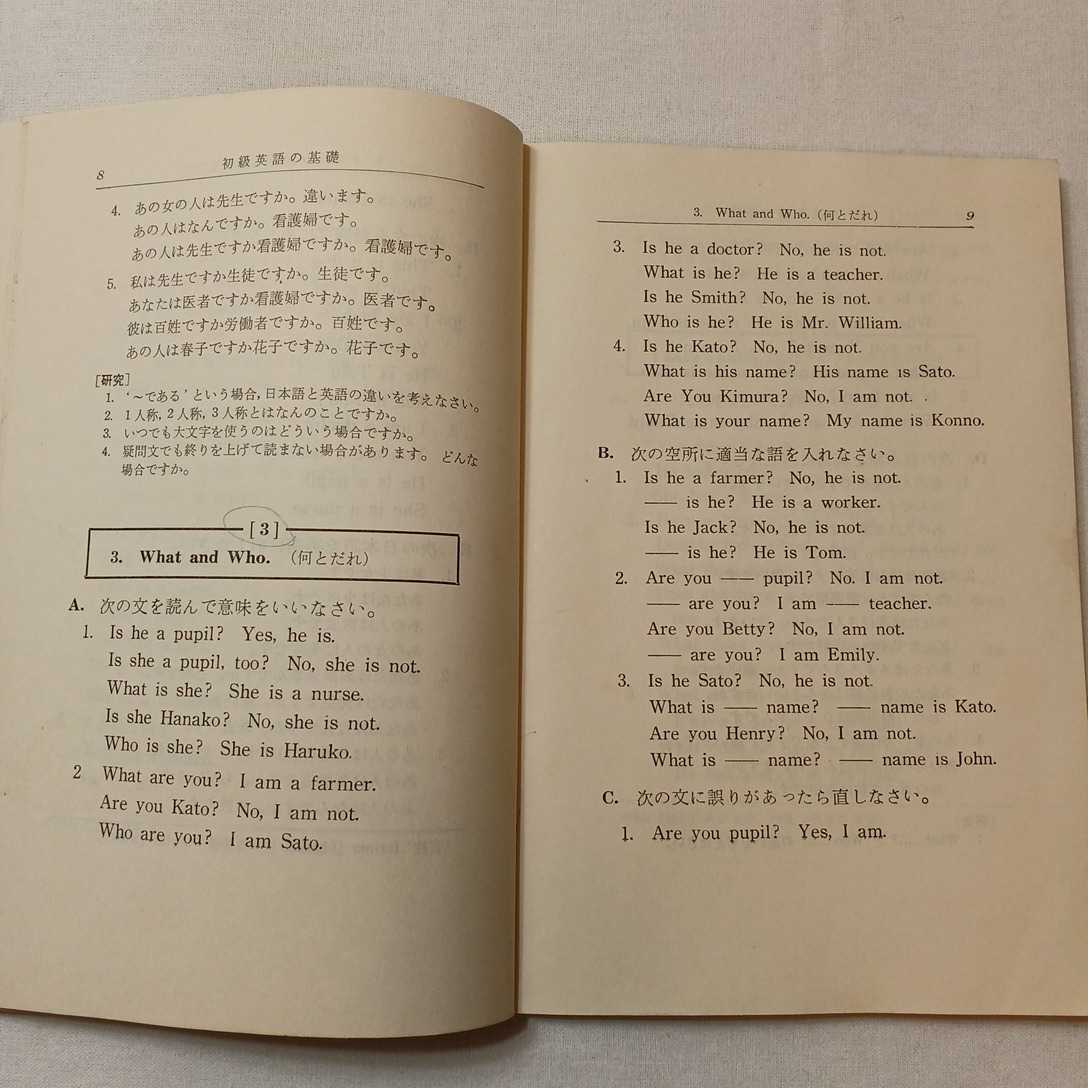 8
初級英語の基礎
4. あの女の人は先生ですか。違います。
あの人はなんですか。看護婦です。
あの人は先生ですか看護婦ですか。看護婦です。
5. 私は先生ですか生徒ですか。生徒です。
あなたは医者ですか看護婦ですか。医者です。
彼は百姓ですか労働者ですか。百姓です。
あの人は春子ですか花子ですか。花子です。
[研究]
1. ‘～である’という場合, 日本語と英語の違いを考えなさい。
2. 1人称, 2人称, 3人称とはなんのことですか。
3. いつでも大文字を使うのはどういう場合ですか。
4. 疑問文でも終りを上げて読まない場合があります。 どんな
場合ですか。
[3]
3. What and Who. (何とだれ)
A. 次の文を読んで意味をいいなさい。
1. Is he a pupil? Yes, he is.
Is she a pupil, too? No, she is not.
What is she? She is a nurse.
Is she Hanako? No, she is not.
Who is she? She is Haruko.
2 What are you? I am a farmer.
Are you Kato? No, I am not.
Who are you? I am Sato.
3. What and Who. (何とだれ) 9
3. Is he a doctor? No, he is not.
What is he? He is a teacher.
Is he Smith? No, he is not.
Who is he? He is Mr. William.
4. Is he Kato? No, he is not.
What is his name? His name is Sato.
Are You Kimura? No, I am not.
What is your name? My name is Konno.
B. 次の空所に適当な語を入れなさい。
1. Is he a farmer? No, he is not.
—— is he? He is a worker.
Is he Jack? No, he is not.
—— is he? He is Tom.
2. Are you —— pupil? No. I am not.
—— are you? I am —— teacher.
Are you Betty? No, I am not.
—— are you? I am Emily.
3. Is he Sato? No, he is not.
What is —— name? —— name is Kato.
Are you Henry? No, I am not.
What is —— name? —— name is John.
C. 次の文に誤りがあったら直しなさい。
1. Are you pupil? Yes, I am.